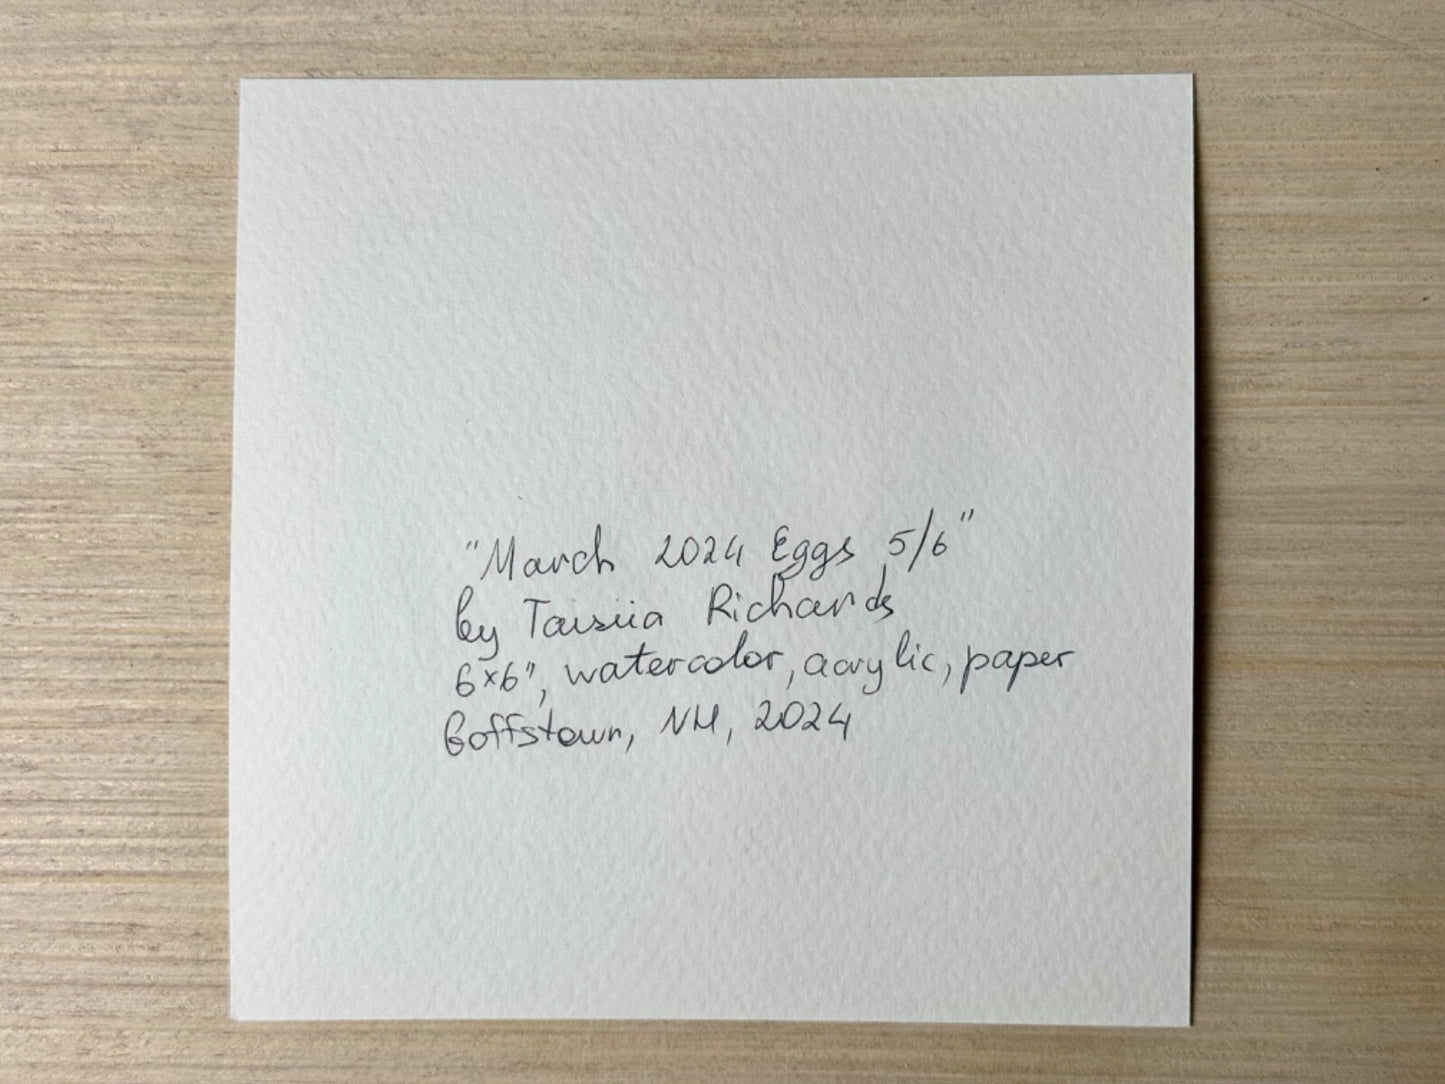 "March 2024 Eggs 5/6"
by Taisiia Richards
6×6", watercolor, acrylic, paper
Goffstown, NH, 2024